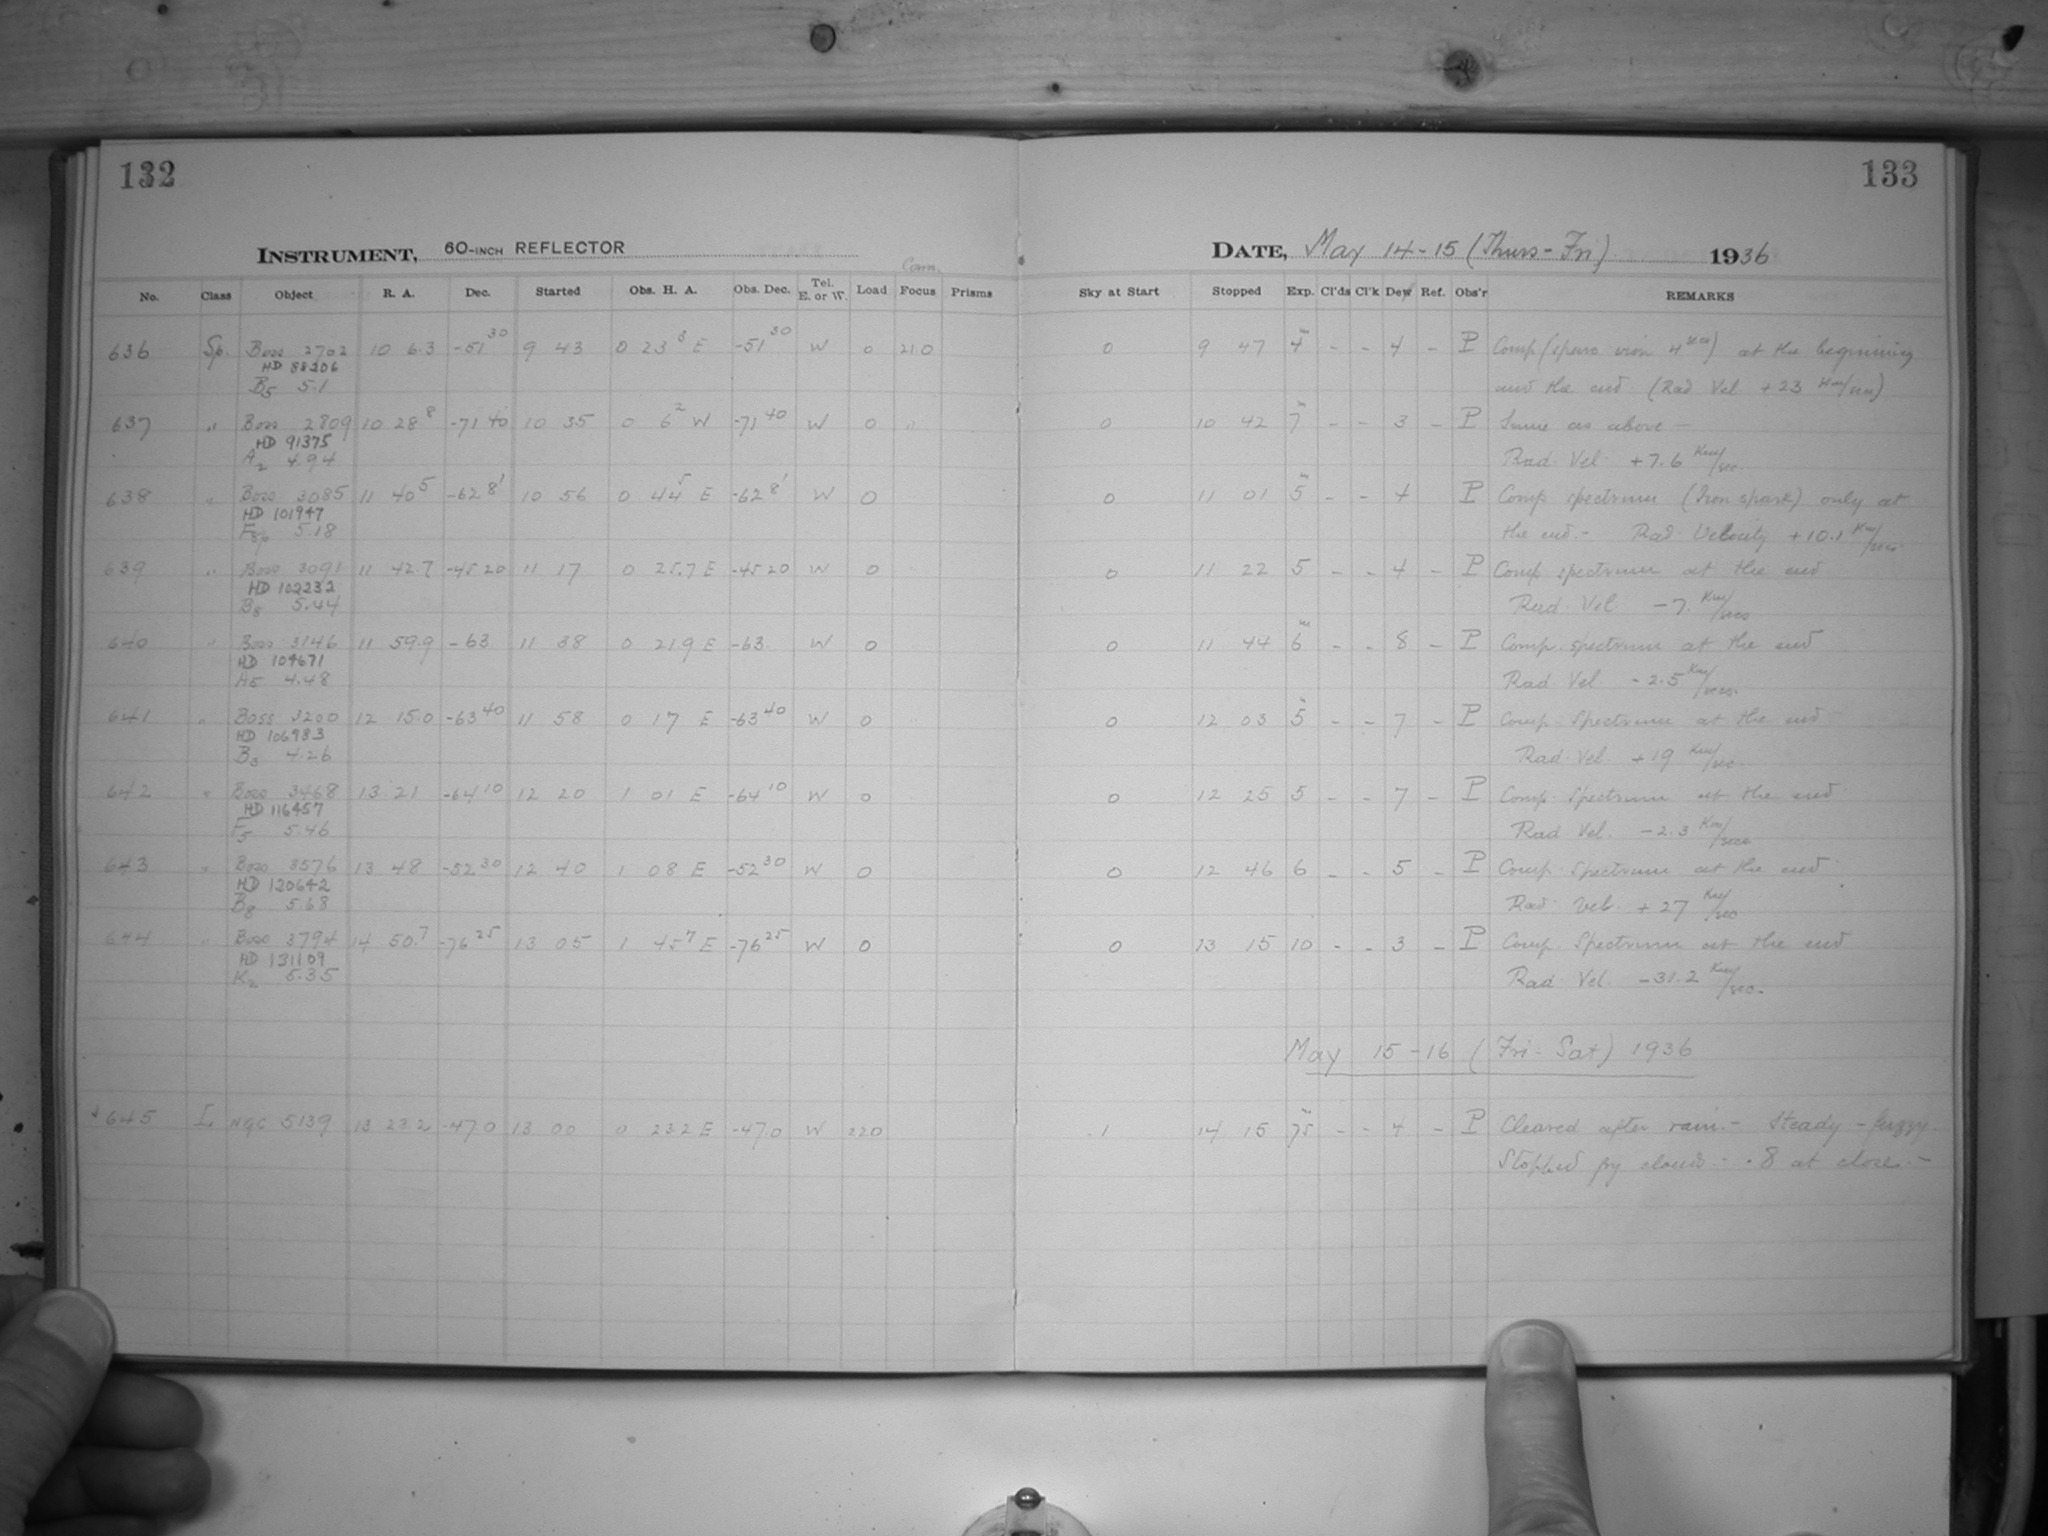 132
133
INSTRUMENT, 60-INCH REFLECTOR
DATE, May 14-15 (Thurs-Fri) 1936
No. Class Object R. A. Dec. Started Obs. H. A. Obs. Dec. Tel. E. or W. Load Focus Prisms Sky at Start Stopped Exp. Cl'ds Cl'k Dew Ref. Obs'r REMARKS
636 Sp. Boss 2702 10 6.3 -51 30 9 43 0 23 8 E -51 30 W 0 210 0 9 47 4 m - - 4 - P Comp (spark iron 4 sec) at the beginning
HD 88206
B5 5.1 and the end (Rad Vel +23 Km/sec)
637 " Boss 2809 10 28 8 -71 40 10 35 0 6 2 W -71 40 W 0 " 0 10 42 7 m - - 3 - P Same as above -
HD 91375
A2 4.94 Rad. Vel. +7.6 Km/sec
638 " Boss 3085 11 40 5 -62 8' 10 56 0 44 5 E -62 8' W 0 0 11 01 5 m - - 4 P Comp spectrum (Iron spark) only at
HD 101947
F8p 5.18 the end. - Rad. Velocity +10.1 Km/sec.
639 " Boss 3091 11 42.7 -45 20 11 17 0 25.7 E -45 20 W 0 0 11 22 5 - - 4 - P Comp spectrum at the end
HD 102232
B8 5.44 Rad. Vel -7. Km/sec
640 " Boss 3146 11 59.9 -63 11 38 0 21.9 E -63. W 0 0 11 44 6 m - - 8 - P Comp. spectrum at the end
HD 104671
A5 4.48 Rad. Vel. -2.5 Km/sec.
641 " Boss 3200 12 15.0 -63 40 11 58 0 17 E -63 40 W 0 0 12 03 5 - - 7 - P Comp. Spectrum at the end
HD 106983
B3 4.26 Rad. Vel. +19 Km/sec.
642 " Boss 3468 13 21 -64 10 12 20 1 01 E -64 10 W 0 0 12 25 5 - - 7 - P Comp. Spectrum at the end
HD 116457
F5 5.46 Rad Vel. -2.3 Km/sec
643 " Boss 3576 13 48 -52 30 12 40 1 08 E -52 30 W 0 0 12 46 6 - - 5 - P Comp. Spectrum at the end
HD 120642
B8 5.68 Rad. Vel. +27 Km/sec
644 " Boss 3794 14 50.7 -76 25 13 05 1 45 7 E -76 25 W 0 0 13 15 10 - - 3 - P Comp. Spectrum at the end
HD 131109
K2 5.35 Rad. Vel. -31.2 Km/sec.
May 15-16 (Fri-Sat) 1936
645 L NGC 5139 13 23.2 -47.0 13 00 0 23.2 E -47.0 W 220 .1 14 15 75 m - - 4 - P Cleared after rain. - Steady - fuzzy.
Stopped by clouds. - .8 at close. -